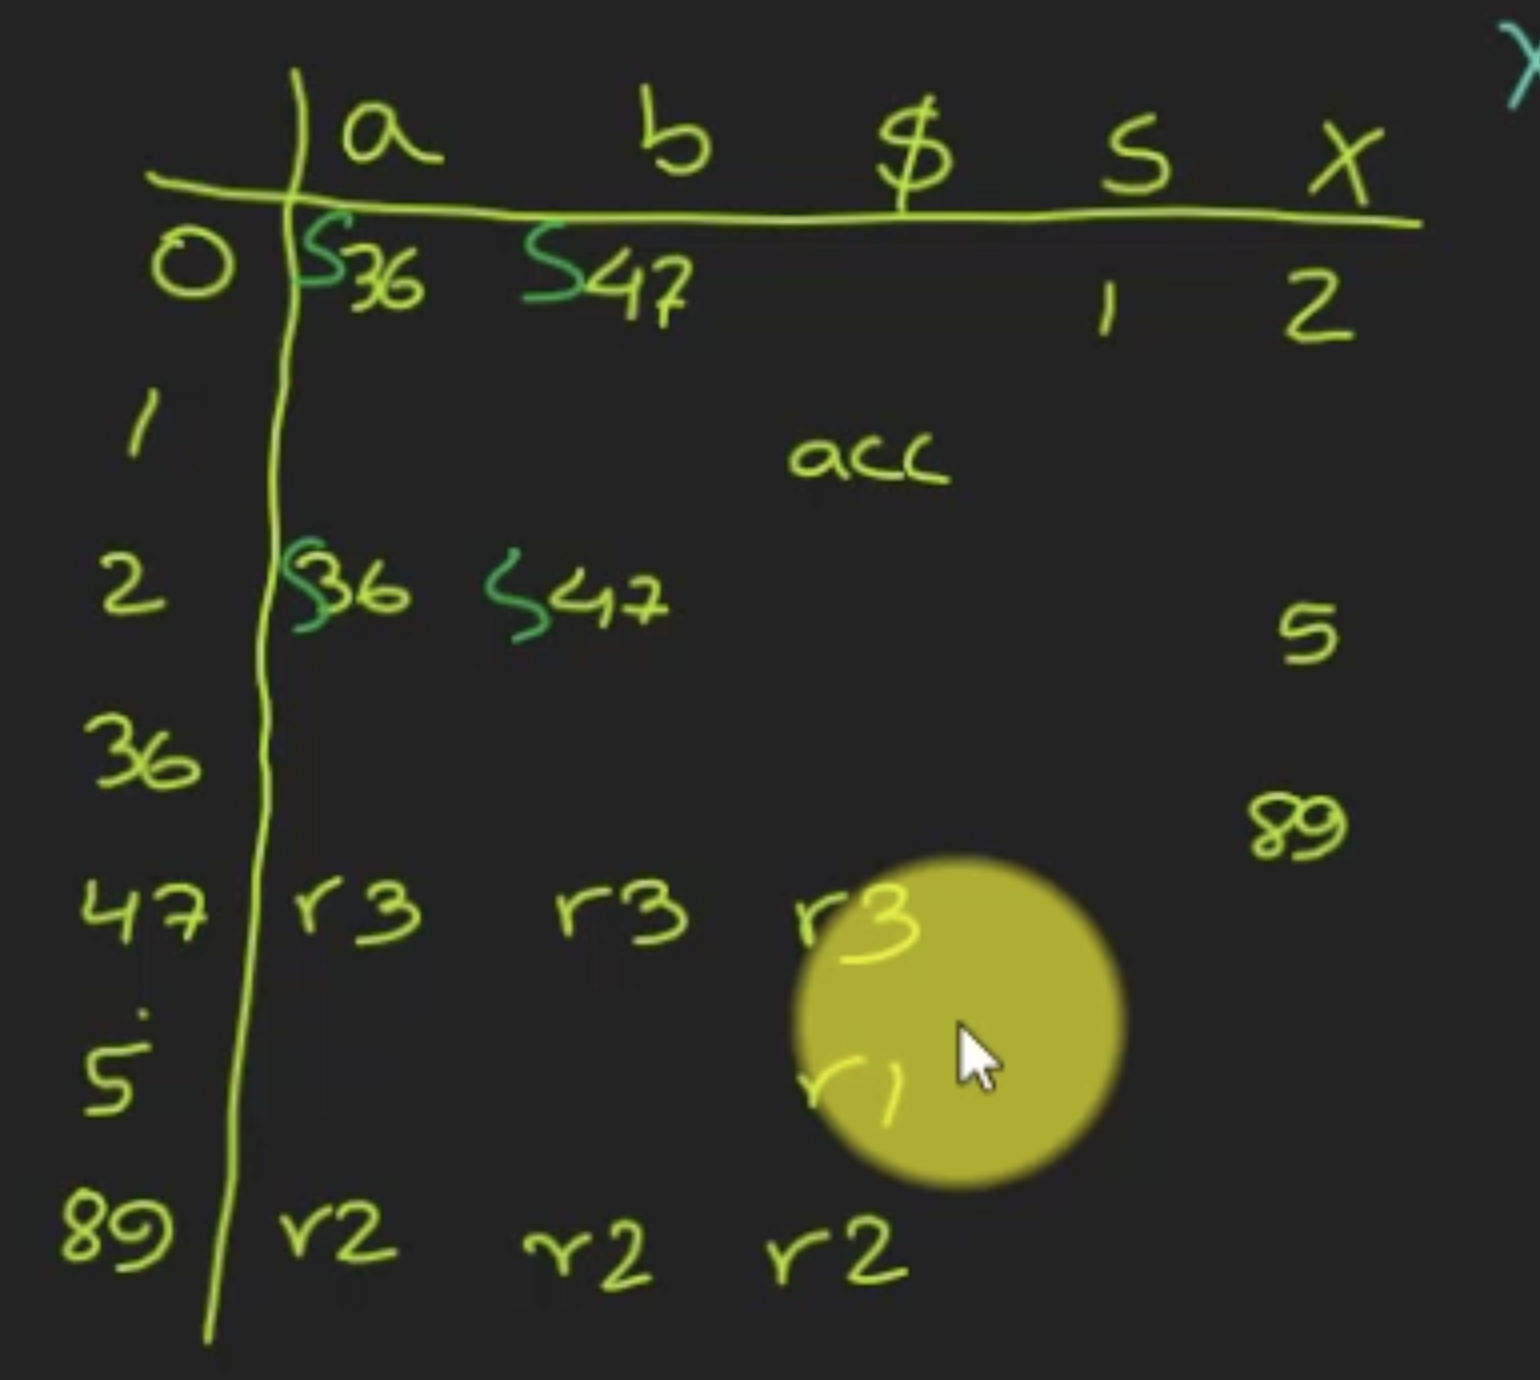 a b $ S X
0 S36 S47 1 2
1 acc
2 S36 S47 5
36 89
47 r3 r3 r3
5 r1
89 r2 r2 r2